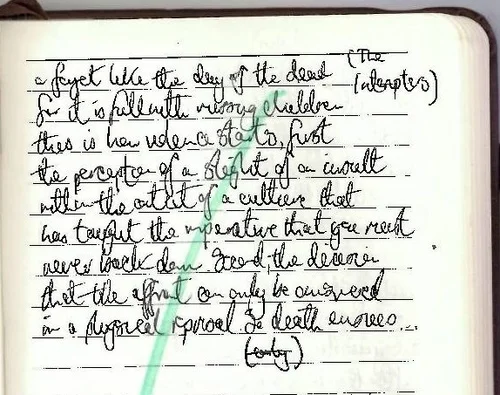 a forget like the day of the dead (The
for it is full with missing children Interpters)
this is how violence starts, first
the perception of a slight of an insult
within the context of a culture that
has taught the imperative that you must
never back down second, the decision
that the affront can only be answered
in a physical reprisal So death ensues...
(early)